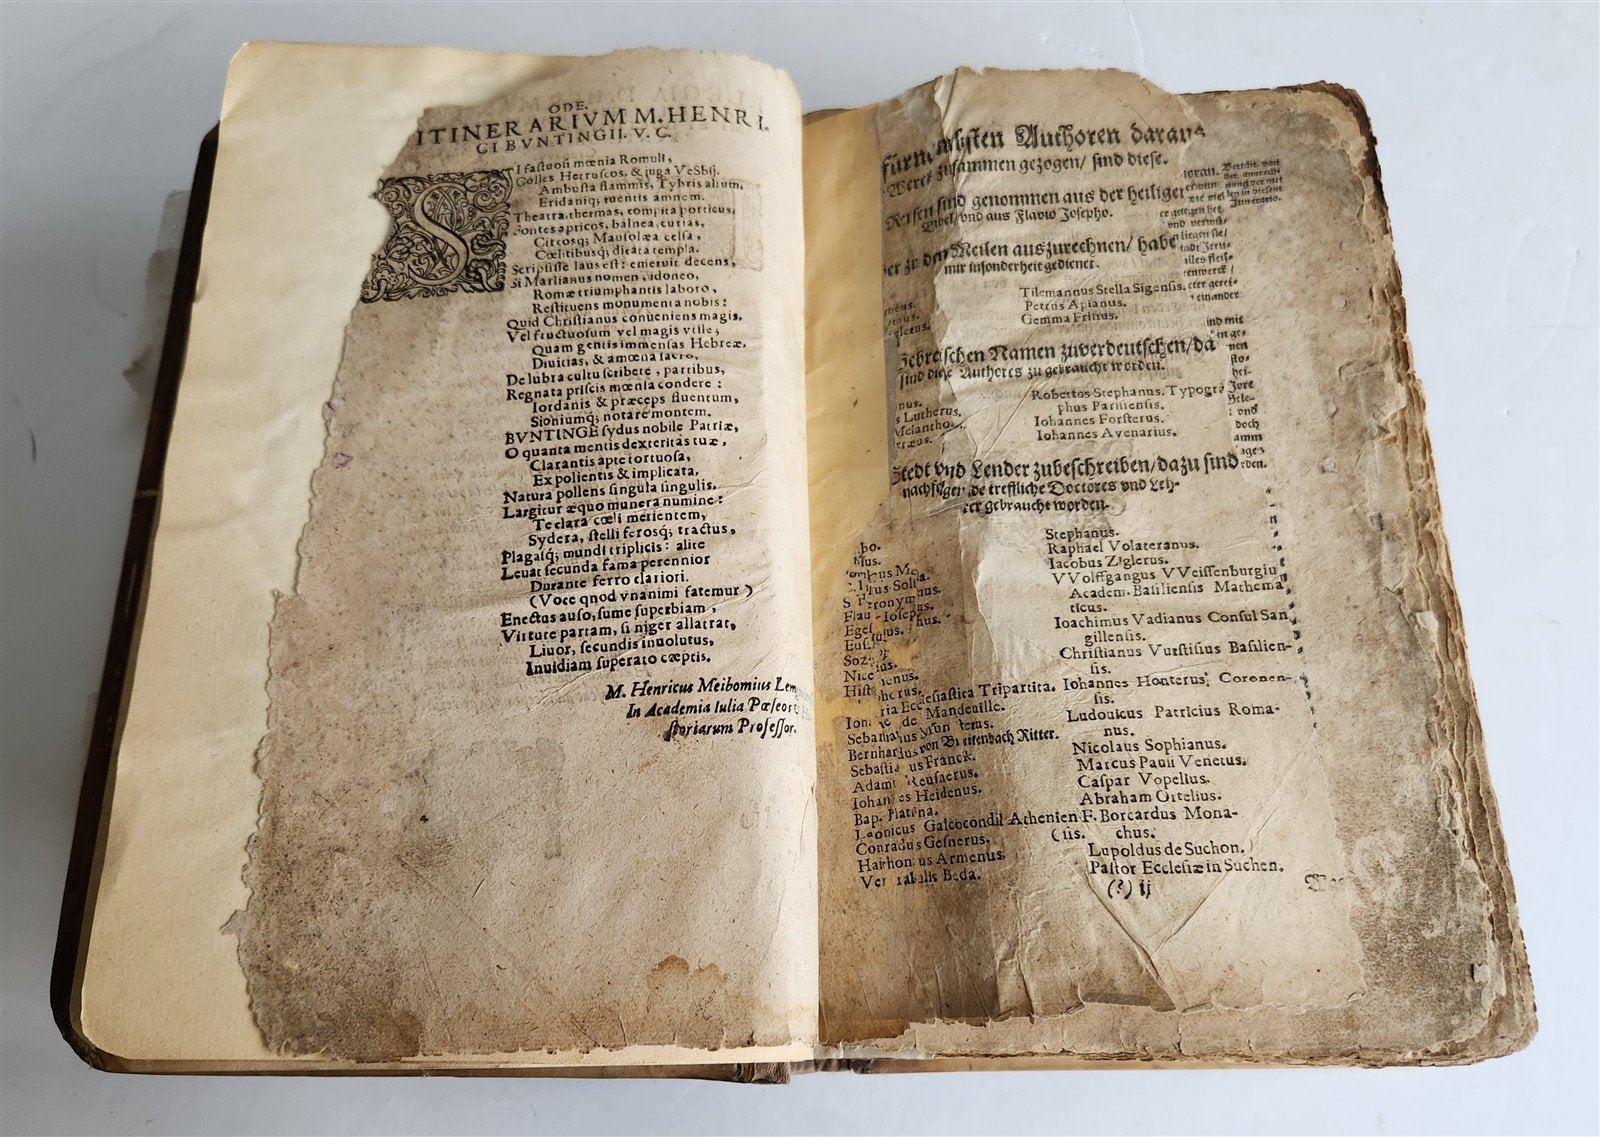 ODE.
ITINERARIVM M. HENRI-
CI BVNTINGII. V. C.
SI fastuosi mœnia Romuli,
Colles Hetruscos, & juga VeSbij.
Ambusta flammis, Tybris alium,
Eridaniq; ruentis amnem.
Theatra, thermas, compita porticus,
Fontes apricos, balnea, curias,
Circosq; Mausolæa celsa,
Cœlitibusq; dicata templa.
Scripsisse laus est: emeruit decens,
Si Marlianus nomen, idoneo,
Romæ triumphantis laboro,
Restituens monumenta nobis:
Quid Christianus conueniens magis,
Vel fructuosum vel magis vtile;
Quam gentis immensas Hebreæ,
Diuitias, & amœna sacro,
Delubra cultu scribere, partibus,
Regnata priscis mœnia condere:
Iordanis & præceps fluentum,
Sioniumq; notare montem.
BVNTINGE sydus nobile Patriæ,
O quanta mentis dexteritas tuæ,
Clarantis apte tortuosa,
Expolientis & implicata.
Natura pollens singula singulis.
Largitur æquo munera numine:
Te clara cœli merientem,
Sydera, stelliferosq; tractus,
Plagasq; mundi triplicis: alite
Leuat secunda fama perennior
Durante ferro clariori.
(Voce qnod vnanimi fatemur)
Enectus auso, sume superbiam,
Virtute partam, si niger allatrat,
Liuor, secundis inuolutus,
Inuidiam superato cœptis.
M. Henricus Meibomius Lem
In Academia Iulia Pœseos
storiarum Professor.
fürnembsten Authoren daraus
Werck zusammen gezogen/ sind diese.
Reisen sind genommen aus der heiligen
Bibel/ vnd aus Flavio Josepho.
zu den Meilen auszurechnen/ habe
mir insonderheit gedienet.
Tilemannus Stella Sigensis.
Petrus Apianus.
Gemma Frisius.
Hebreischen Namen zuverdeutschen/ da
sind diese Authores zu gebraucht worden.
Robertus Stephanus. Typogra
phus Parisiensis.
s Lutherus.
Iohannes Forsterus.
Melanthon
Iohannes Avenarius.
Stedt vnd Lender zubeschreiben/ dazu sind
nachfolgende treffliche Doctores vnd Leh-
rer gebraucht worden.
Stephanus.
Raphael Volateranus.
Iacobus Ziglerus.
VVolffgangus VVeissenburgiu
Academ. Basiliensis Mathema
ticus.
Ioachimus Vadianus Consul San
gillensis.
Christianus Vurstisius Basilien-
sis.
Iohannes Honterus, Coronen-
sis.
Ludouicus Patricius Roma-
nus.
Nicolaus Sophianus.
Marcus Pauli Venetus.
Caspar Vopelius.
Abraham Ortelius.
F. Borcardus Mona-
chus.
Lupoldus de Suchon.
Pastor Ecclesiæ in Suchen.
Ecclesiastica Tripartita.
de Mandeuille.
Bernhardus von Breitenbach Ritter.
Sebastianus Franck.
Adam Reusnerus.
Iohannes Heidenus.
Bap. Platena.
Laonicus Galcocondil Athenien
(sis.
Conradus Gesnerus.
Haithonus Armenus.
Venerabilis Beda.
(?) ij
Bericht von
der ausrech
nung der mei
len in diesem
Itinerario.